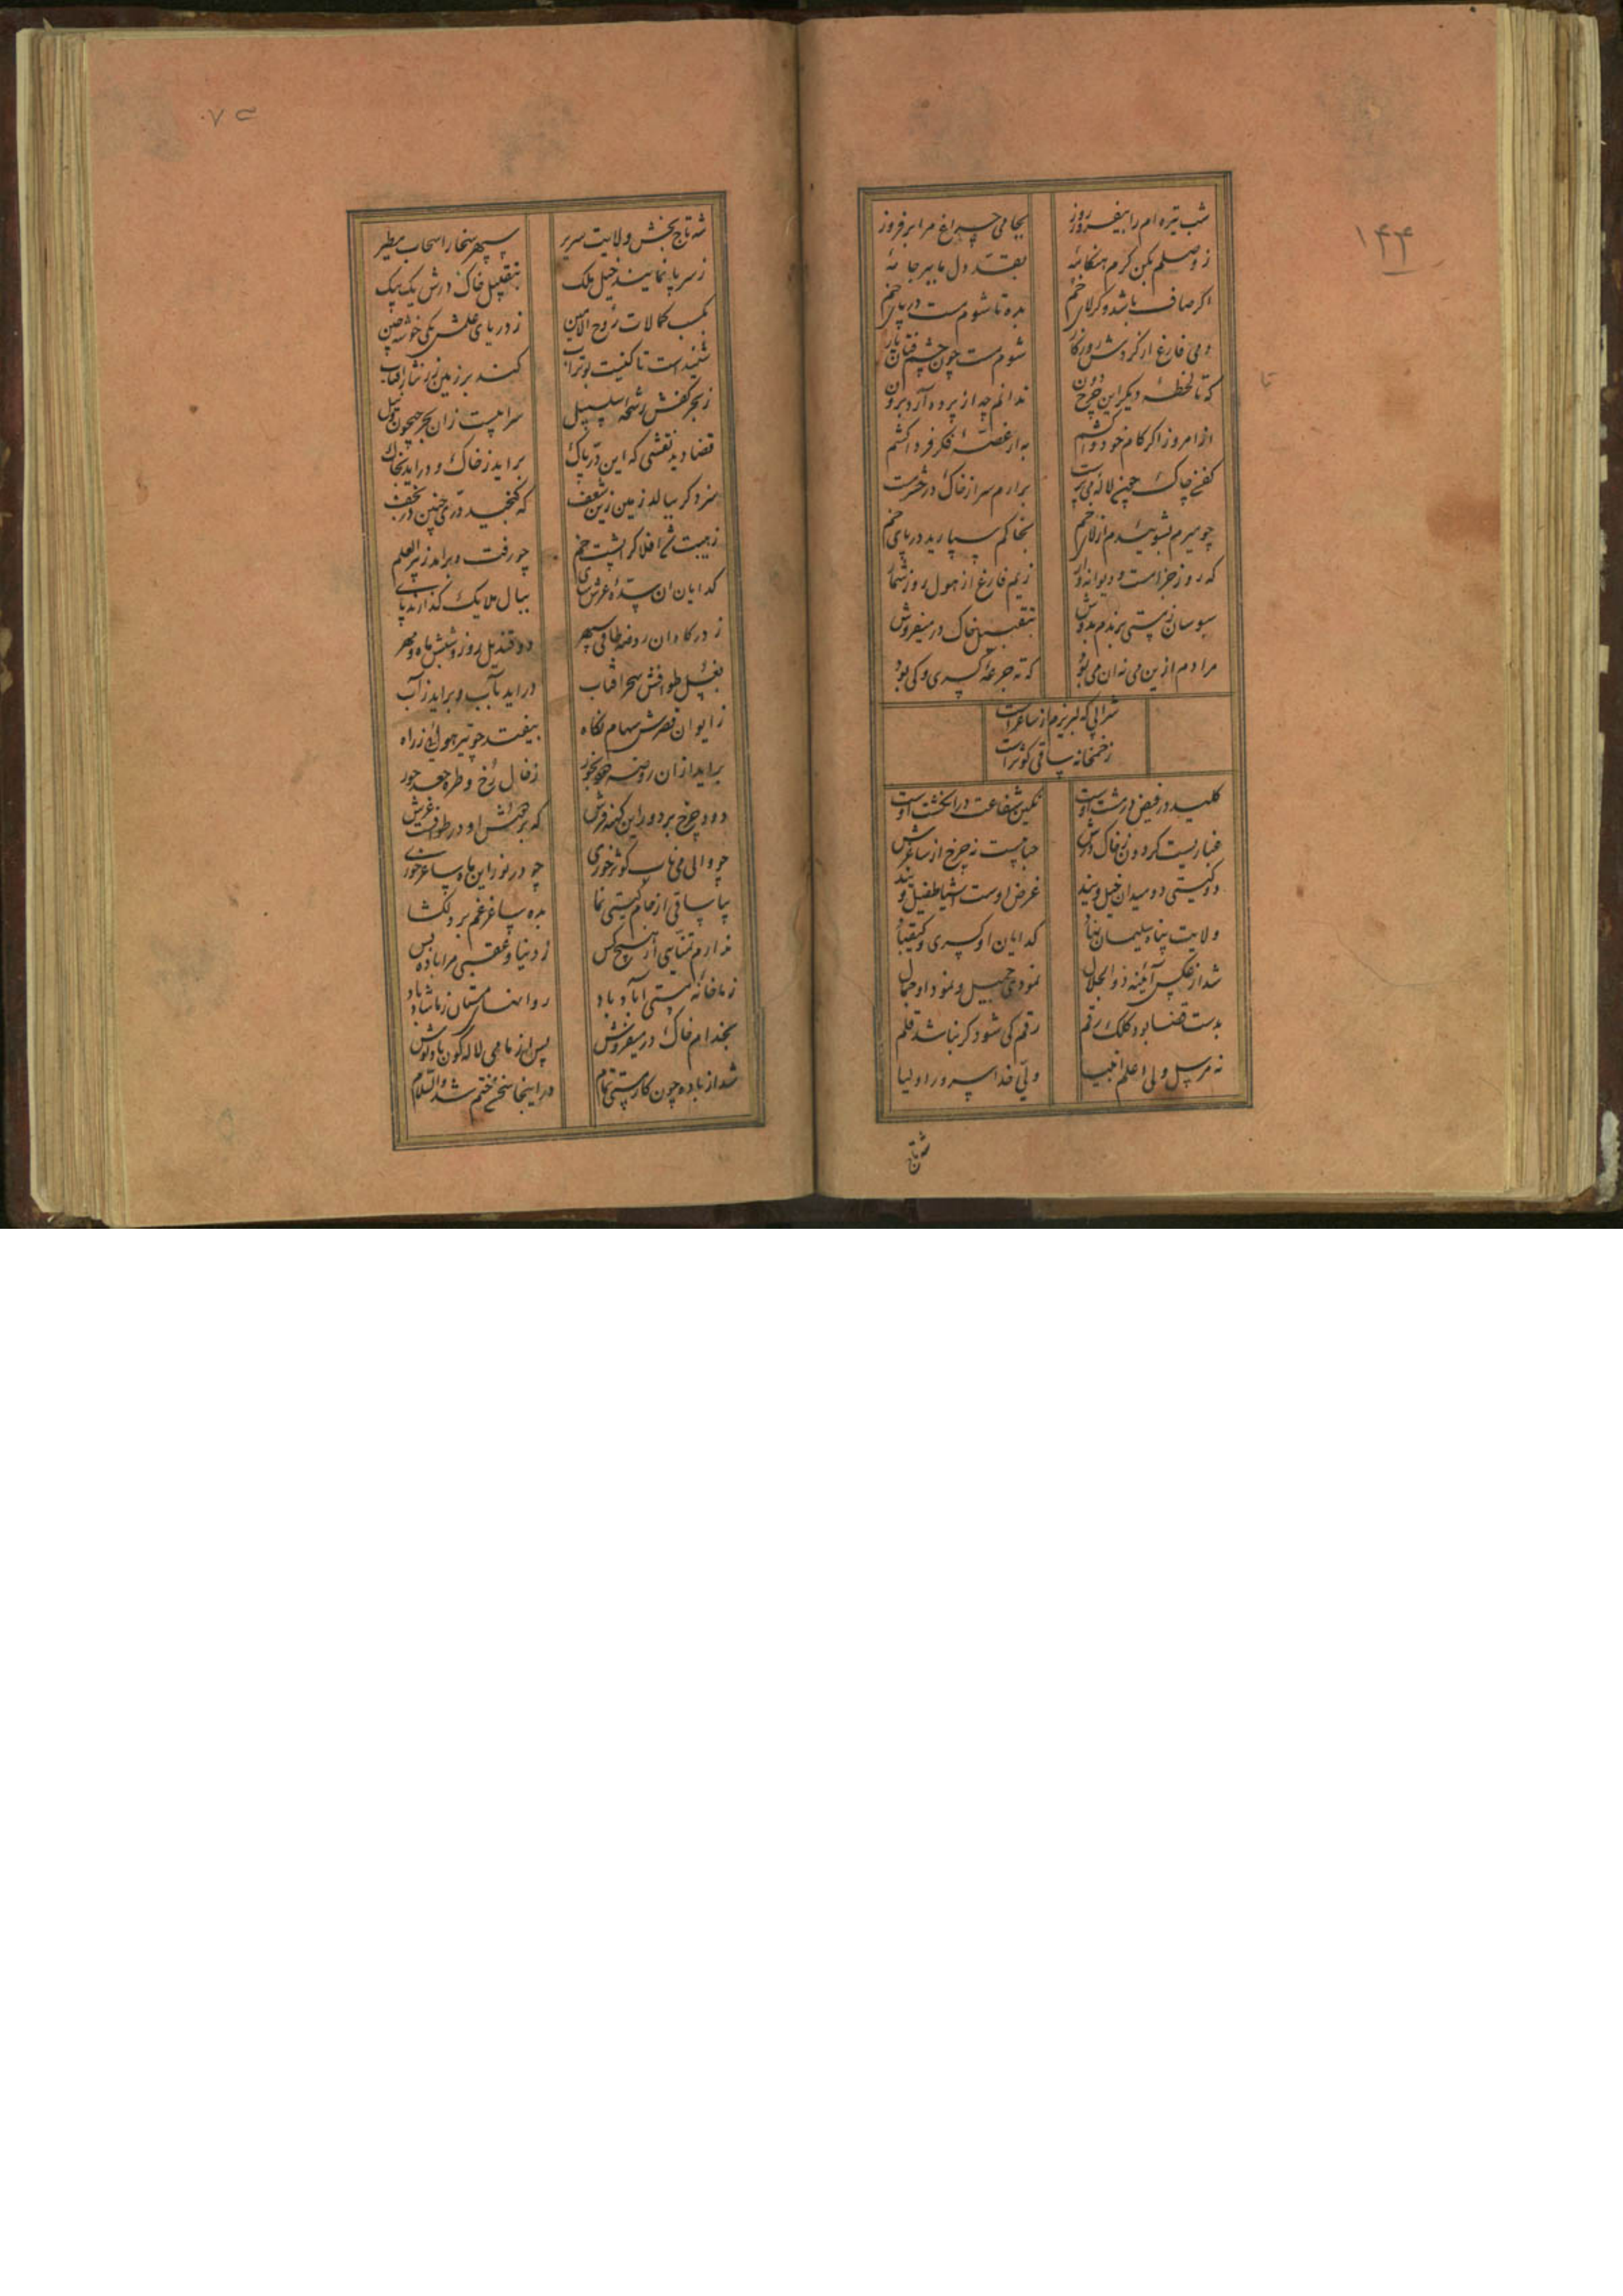 ۱۴۴
شب تیره ام را بیفروز روز
بجامی چراغ مرا برفروز
ز وصلم بکن کرم هنکامهٔ
بنقد دل ما بپر جامهٔ
اکر صاف باشد وکر لای خم
بده تا شوم مست در پای خم
دمی فارغ از کردش روزکار
شوم مست چون چشم فتان یار
که تا لحظهٔ دیکر این چرخ دون
ندانم چه از پرده آرد برون
از امروز اکر کام خود واکشم
به از غصهٔ فکر فردا کشم
کفن چاک چون لاله می پرست
برارم سر از خاک در حشر مست
چو میرم بشویید م از لای خم
بخاکم سپارید در پای خم
که روز جزا مست و دیوانه وار
زیم فارغ از هول روز شمار
سبوسان ز مستی برندم بدوش
بتقبیل خاک در میفروش
مرادم ازین می نه ان می بود
که ته جرعهٔ کسری و کی بود
شرابی که لبریزم از ساغر است
ز خمخانه ساقی کوثر است
کلید در فیض در مشت اوست
نکین شفاعت در انکشت اوست
غباریست کردون ز خاک درش
حبابیست نه چرخ از ساغرش
دو کیتی دو میدان خیل ویند
غرض اوست اشیا طفیل ویند
ولایت پناه سلیمان نهاد
کدایان او کسری و کیقباد
شد از عکس آئینه ذوالجلال
نمودی جمیل و نمود او جمال
بدست قضا بود کلک رقم
رقم کی شود کر نباشد قلم
نه مرسل ولی اعلم انبیا
ولی خدا سرور اولیا
شه تاج
شه تاج بخش ولایت سریر
سپهر سخا را سحاب مطیر
ز سر پا نمایند خیل ملک
بتقبیل خاک درش یک بیک
بکسب کمالات روح الامین
ز دریای علمش یکی خوشه چین
شنیداست تا کنیت بوتراب
کند بر زمین نور نثار افتاب
ز بحر کفش رشحه سلسبیل
سرابیست زان بحر جیحون و نیل
قضا دید نقشی که این در پاک
براید ز خاک و دراید بخاک
سزد کر ببالد زمین زین شعف
که کنجید دری چنین در نجف
ز هیبت شد افلاک را پشت خم
چو رفت و برامد ز بیر العلم
کدایان ان سده عرش سای
ببال ملایک کذارند پای
ز درکاه ان روضه طاق سپهر
دو قندیل روز و شبش ماه و مهر
بغسل طوافش سحر افتاب
دراید بآب و براید ز آب
ز ایوان قصرش سهام نکاه
بیفتد چو تیر هوائی ز راه
براید ازان روضه بخور
ز خال رخ و طره جعد حور
دود چرخ بر دور این کهنه فرش
که بر کردش او در طوافست عرش
چو والی می ناب کوثر خوری
چو در نوز این ماه ساغر خوری
بیا ساقی از جام کیتی نما
بده ساغر غم بر دلکشا
ندارم تمنایی از هیچ کس
ز دنیا و عقبی مرا باده بس
ز ما خانه مستی اباد باد
روانهای مستان ز ما شاد باد
بخدام خاک در میفروش
پس از ما می لاله کون باد نوش
شد از باده چون کار مستی تمام
در اینجا سخن ختم شد والسلام